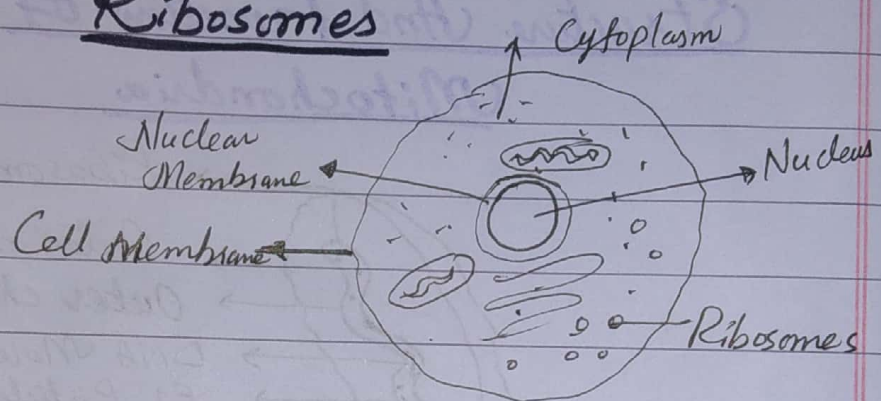 Ribosomes
Cytoplasm
Nuclear
Membrane
Nucleus
Cell Membrane
Ribosomes